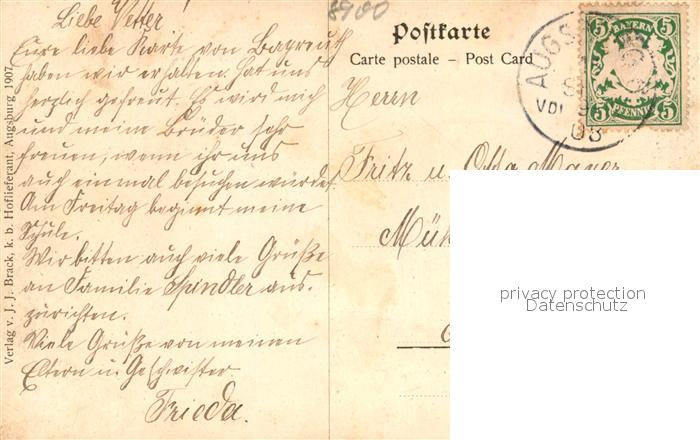 8900
Liebe Vetter!
Eure liebe Karte von Bayreuth
haben wir erhalten. Hat uns
herzlich gefreut. Es wird mich
und meine Brüder sehr
freuen, wenn ihr uns
auch einmal besuchen würdet.
Am Freitag beginnt meine
Schule.
Wir bitten auch viele Grüße
an Familie Spindler aus-
zürichten.
Viele Grüße von meinen
Eltern u. Geschwister
Frieda.
Verlag v. J. J. Brack, k. b. Hoflieferant, Augsburg 1907
Postkarte
Carte postale – Post Card
AUGS
VDI
08
BAYERN
5 5
PFENNIG
5 5
Herrn
Fritz u. Otto Mayer
Mün
privacy protection
Datenschutz